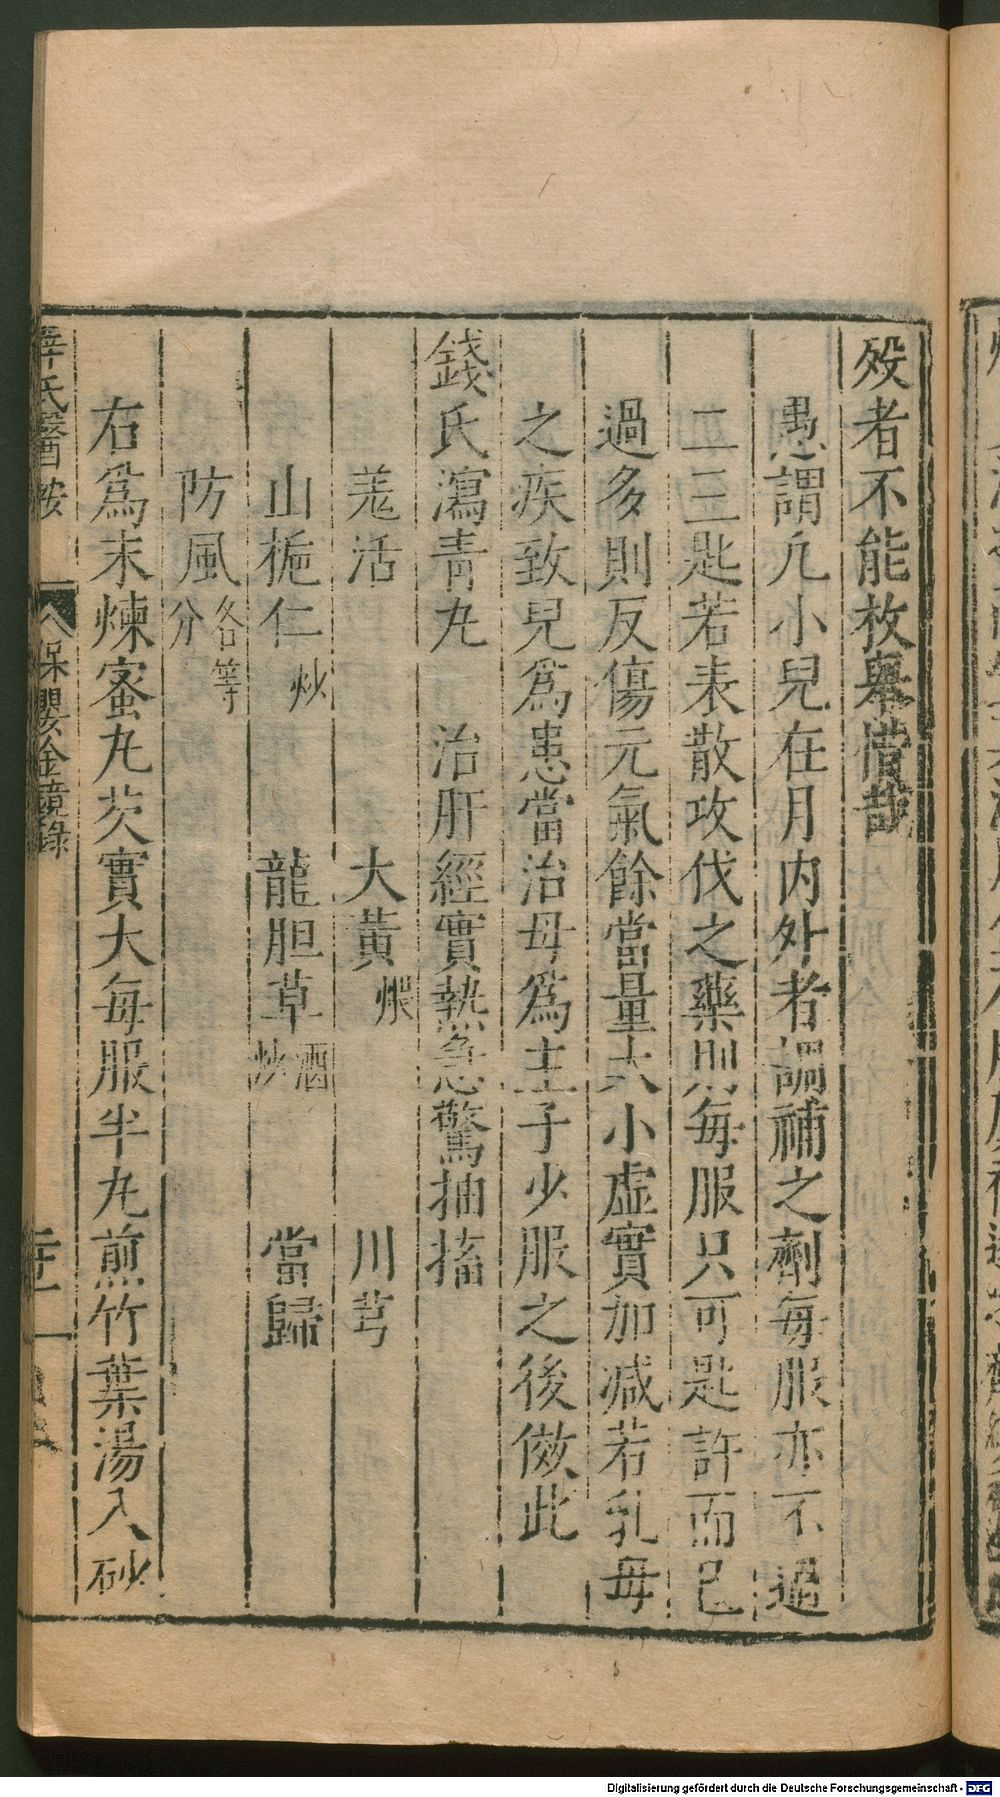 殁者不能枚舉惜哉
愚謂凢小兒在月内外者調補之劑每服亦不過
二三匙若表散攻伐之藥則每服只可匙許而已
過多則反傷元氣餘當量大小虛實加减若乳母
之疾致兒爲患當治母爲主子少服之後倣此
錢氏瀉青丸 治肝經實熱急驚抽搐
羗活 大黃煨 川芎
山梔仁炒 龍胆草酒炒 當歸
防風各等分
右爲末煉蜜丸芡實大每服半丸煎竹葉湯入砂
薛氏醫按 保嬰金鏡錄
Digitalisierung gefördert durch die Deutsche Forschungsgemeinschaft - DFG